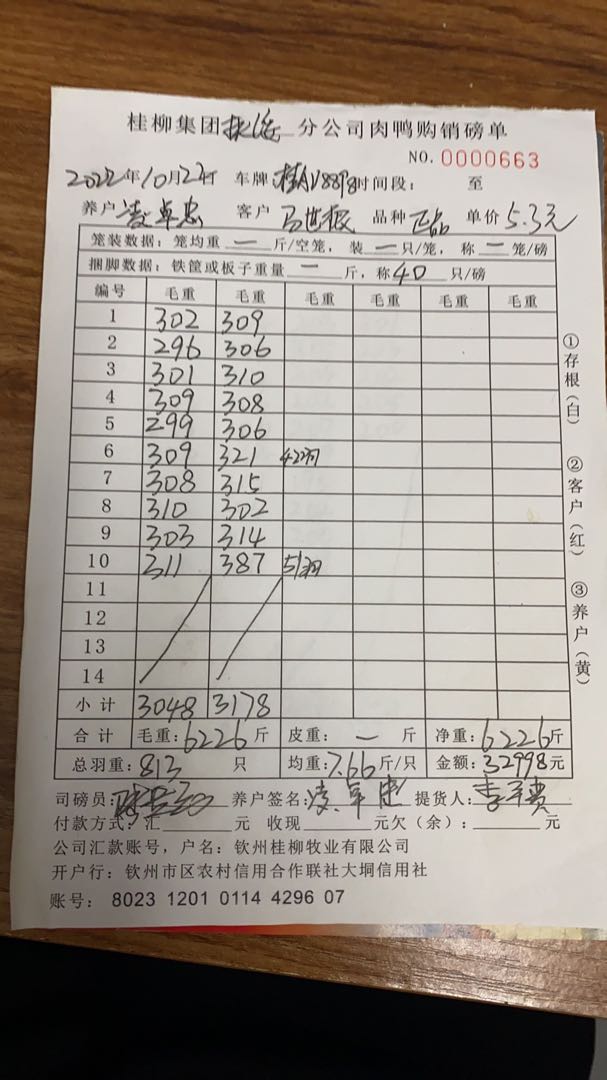 桂柳集团 分公司肉鸭购销磅单
NO. 0000663
2022年10月22日 车牌:桂AV8898时间段: 至
养户 凌卓忠 客户 马世振 品种 正品 单价 5.3元
笼装数据: 笼均重 一 斤/空笼, 装 一 只/笼, 称 一 笼/磅
捆脚数据: 铁筐或板子重量 一 斤, 称 40 只/磅
编号 毛重 毛重 毛重 毛重 毛重 毛重
1 302 309
2 296 306
3 301 310
4 309 308
5 299 306
6 309 321 42羽
7 308 315
8 310 302
9 303 314
10 311 387 51羽
11
12
13
14
小计 3048 3178
合计 毛重: 6226 斤 皮重: 一 斤 净重: 6226 斤
总羽重: 813 只 均重: 7.66 斤/只 金额: 32998元
司磅员: 养户签名: 凌卓忠 提货人:
付款方式: 汇 元 收现 元欠(余): 元
公司汇款账号, 户名: 钦州桂柳牧业有限公司
开户行: 钦州市区农村信用合作联社大垌信用社
账号: 8023 1201 0114 4296 07
①存根(白)
②客户(红)
③养户(黄)